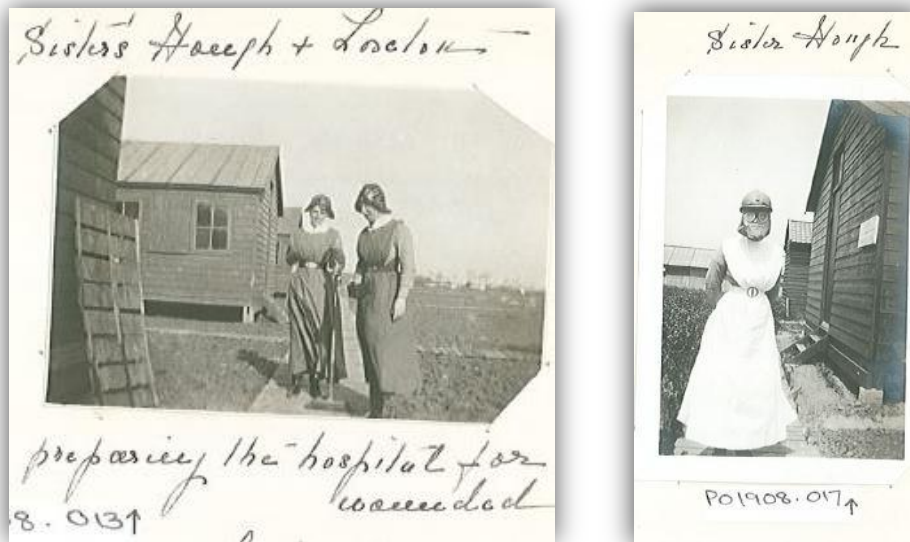 Sisters Hough +
preparing the hospital for
wounded
8.013↑
Sister Hough
PO1908.017↑